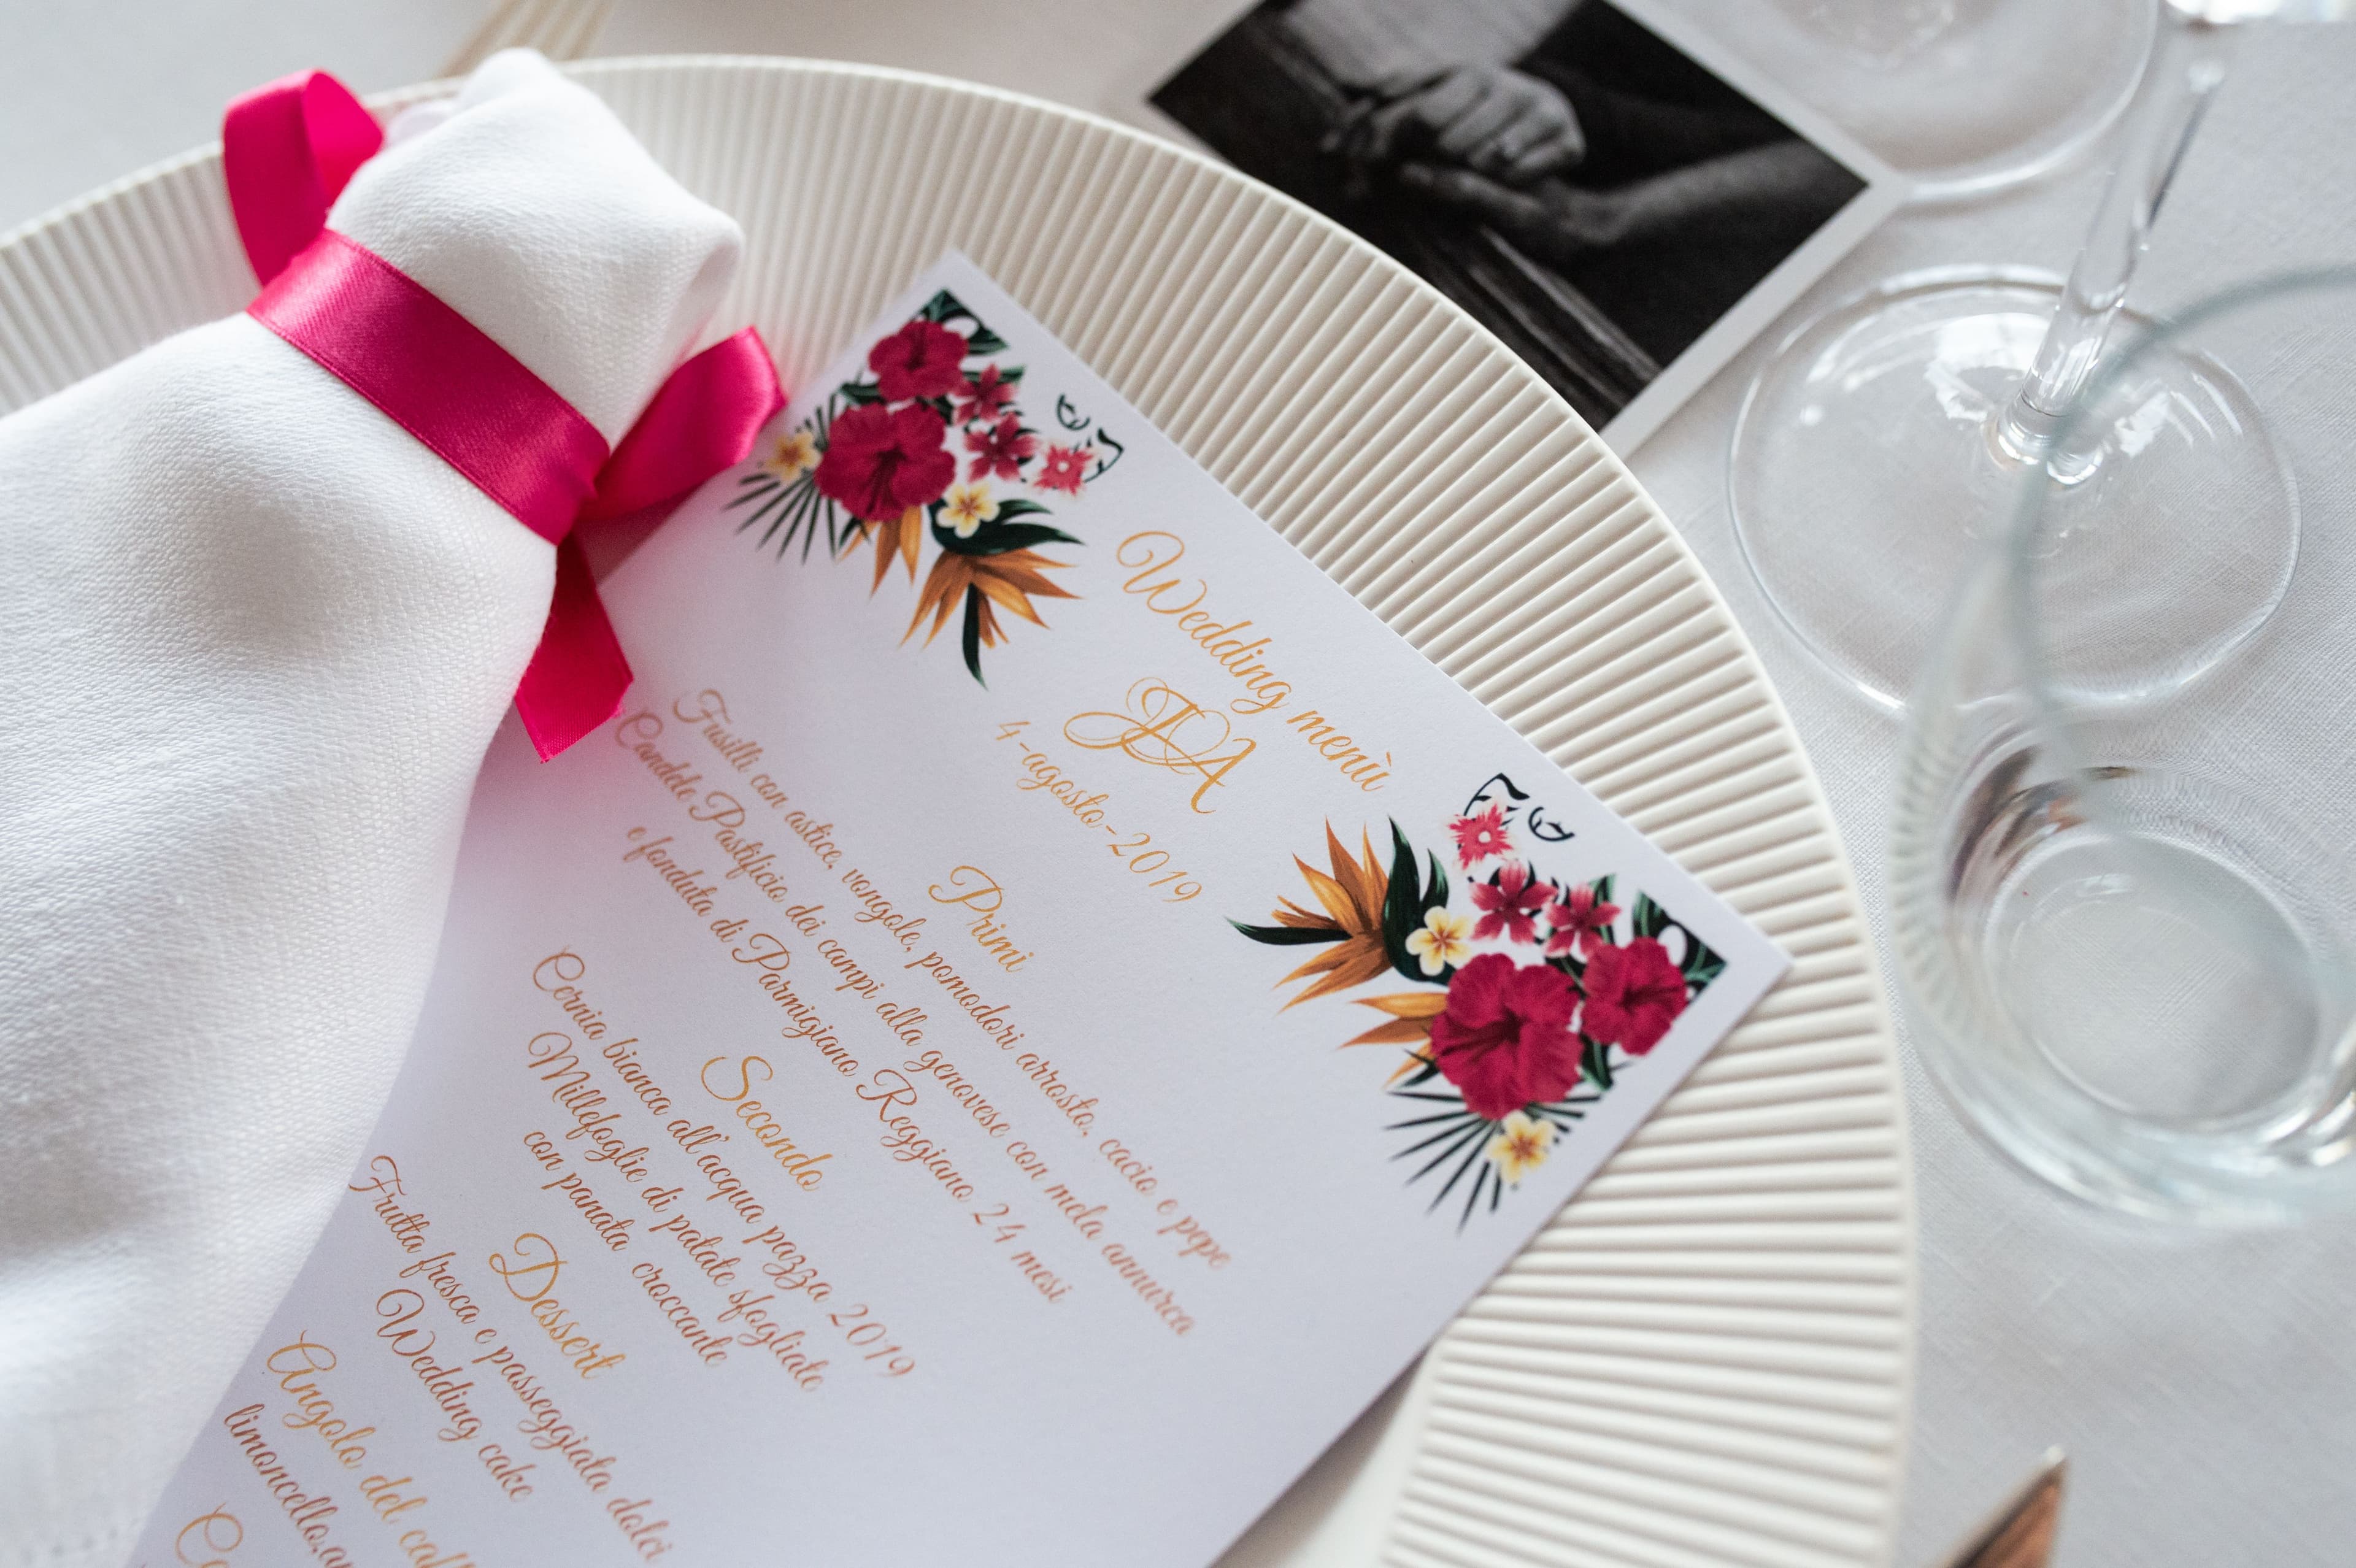 Wedding menù
JA
4-agosto-2019
Primi
Fusilli con astice, vongole, pomodori arrosto, cacio e pepe
Candele Pastificio dei campi alla genovese con mela annurca
e fonduta di Parmigiano Reggiano 24 mesi
Secondo
Cernia bianca all'acqua pazza 2019
Millefoglie di patate sfogliate
con panata croccante
Dessert
Frutta fresca e passeggiata dolci
Wedding cake
Angolo del
limoncello,